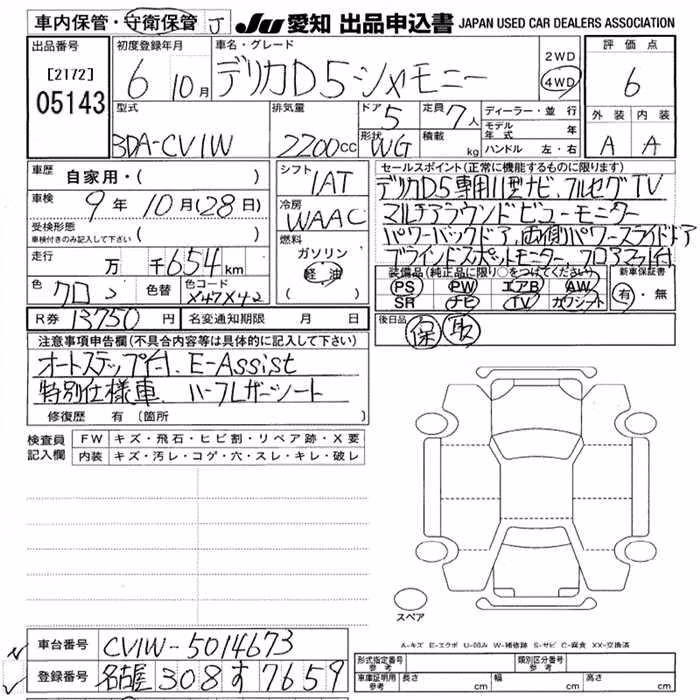 車内保管・守衛保管 J JU 愛知 出品申込書 JAPAN USED CAR DEALERS ASSOCIATION
出品番号 [2172] 05143
初度登録年月 6 10月
車名・グレード デリカD5シャモニー
2WD 4WD
評価点 6
外装 A 内装 A
型式 3DA-CV1W
排気量 2200cc
ドア 5 形状 WG
定員 7人 積載 kg
ディーラー・並行
モデル年式 年
ハンドル 左・右
車歴 自家用・( )
車検 9年 10月(28日)
受検形態 車検付きのみ記入して下さい ( )
走行 万 千654km
色 クロ 色替 色コード X47X42
シフト IAT
冷房 WAAC
燃料 ガソリン 軽油
セールスポイント(正常に機能するものに限ります)
デリカD5専用11型ナビ、フルセグTV
マルチアラウンドビューモニター
パワーバックドア、両側パワースライドドア
ブラインドスポットモニター、フロアマット付
装備品(純正品に限り○をつけてください)
PS PW エアB AW
SR ナビ TV カワシート
新車保証書 有・無
R券 13750円 名変通知期限 月 日
後日品 保 取
注意事項申告欄(不具合内容等は具体的に記入して下さい)
オートステップ付、E-Assist
特別仕様車 ハーフレザーシート
修復歴 有(箇所 )
検査員記入欄
FW キズ・飛石・ヒビ割・リペア跡・X要
内装 キズ・汚レ・コゲ・穴・スレ・キレ・破レ
スペア
A-キズ E-エクボ U-凹み W-補修跡 S-サビ C-腐食 XX-交換済
車台番号 CV1W-5014673
登録番号 名古屋 308 す 7659
形式指定番号 参考 類別区分番号 参考
車庫証明用 参考 長さ cm 幅 cm 高さ cm